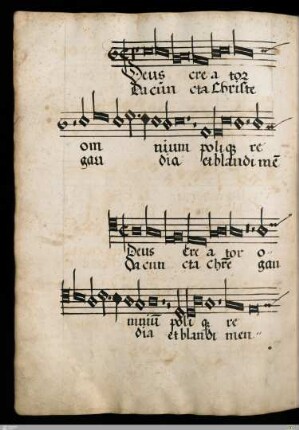 Deus cre a tor
Da cun cta Christe
om nium poli qꝫ re
gau dia et blandi mē
Deus Cre a tor o
Da cun cta Chre gau
mniū poli qꝫ re
dia et blandi men